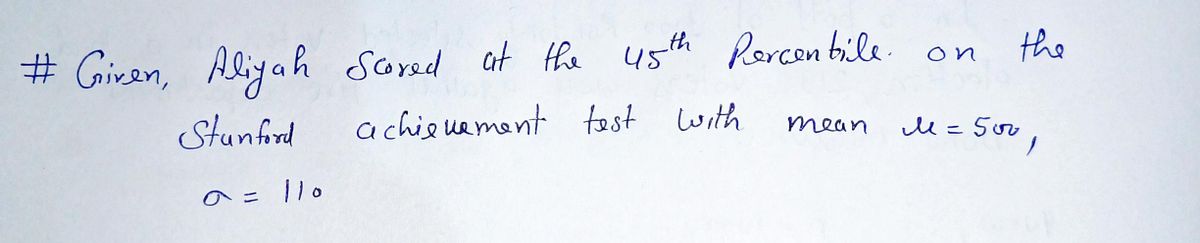 # Given, Aliyah Scored at the 45th Percentile. on the
Stanford achievement test with mean μ = 500,
σ = 110